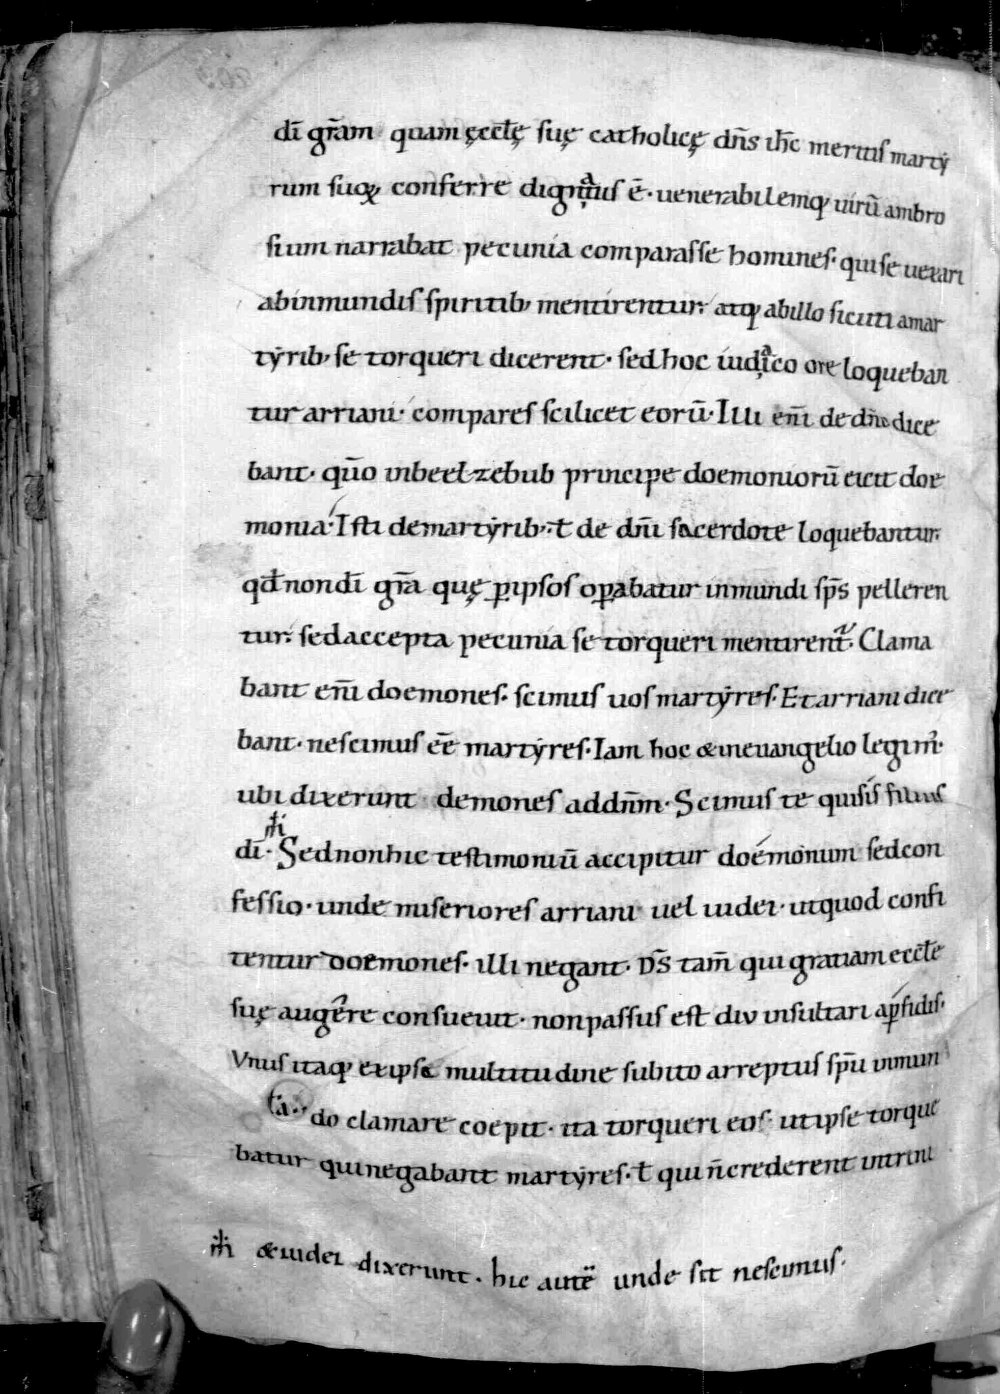 dī gr̄am quam ęccłę suę catholicę dn̄s ih̄c meritis martẏ
rum suoꝝ conferre dignatus ē· uenerabilemq; uirū ambro
sium narrabat pecunia comparasse homines· qui se uexari
abinmundis spiritib; mentirentur· atq; abillo sicuti amar
tẏrib; se torqueri dicerent· sed hoc iudaico ore loqueban
tur arriani· compares scilicet eorū· Illi eni̅ de dn̄o dice
bant· qn̄o inbeelzebub principe doemoniorū eicit doe
monia· Isti demartẏrib; ł de dn̄i sacerdote loquebantur·
qd̄ nondī gr̄a quę ꝑipsos oꝑabatur inmundi sp̄s pelleren
tur· sedaccepta pecunia se torqueri mentirent̄· Clama
bant eni̅ doemones· scimus uos martẏres· Et arriani dice
bant· nescimus eē martẏres· Iam hoc &ineuangelio legim̉·
ubi dixerunt demones addn̄m· Scimus te quisis filius
dī· Sednonhic testimoniū accipitur doemonum sedcon
fessio· unde miseriores arriani uel iudei· utquod confi
tentur doemones· illi negant· Ds̄ tam̄ qui gratiam eccłe
suę augere consueuit· nonpassus est diu insultari a ꝑfidis·
Vnus itaq; exipsa multitudine subito arreptus sp̄u inmun
do clamare coepit· ita torqueri eos· utipse torque
batur quinegabant martẏres· ł qui n̄crederent intrini
&iudei dixerunt· hic autē unde sit nescimus·